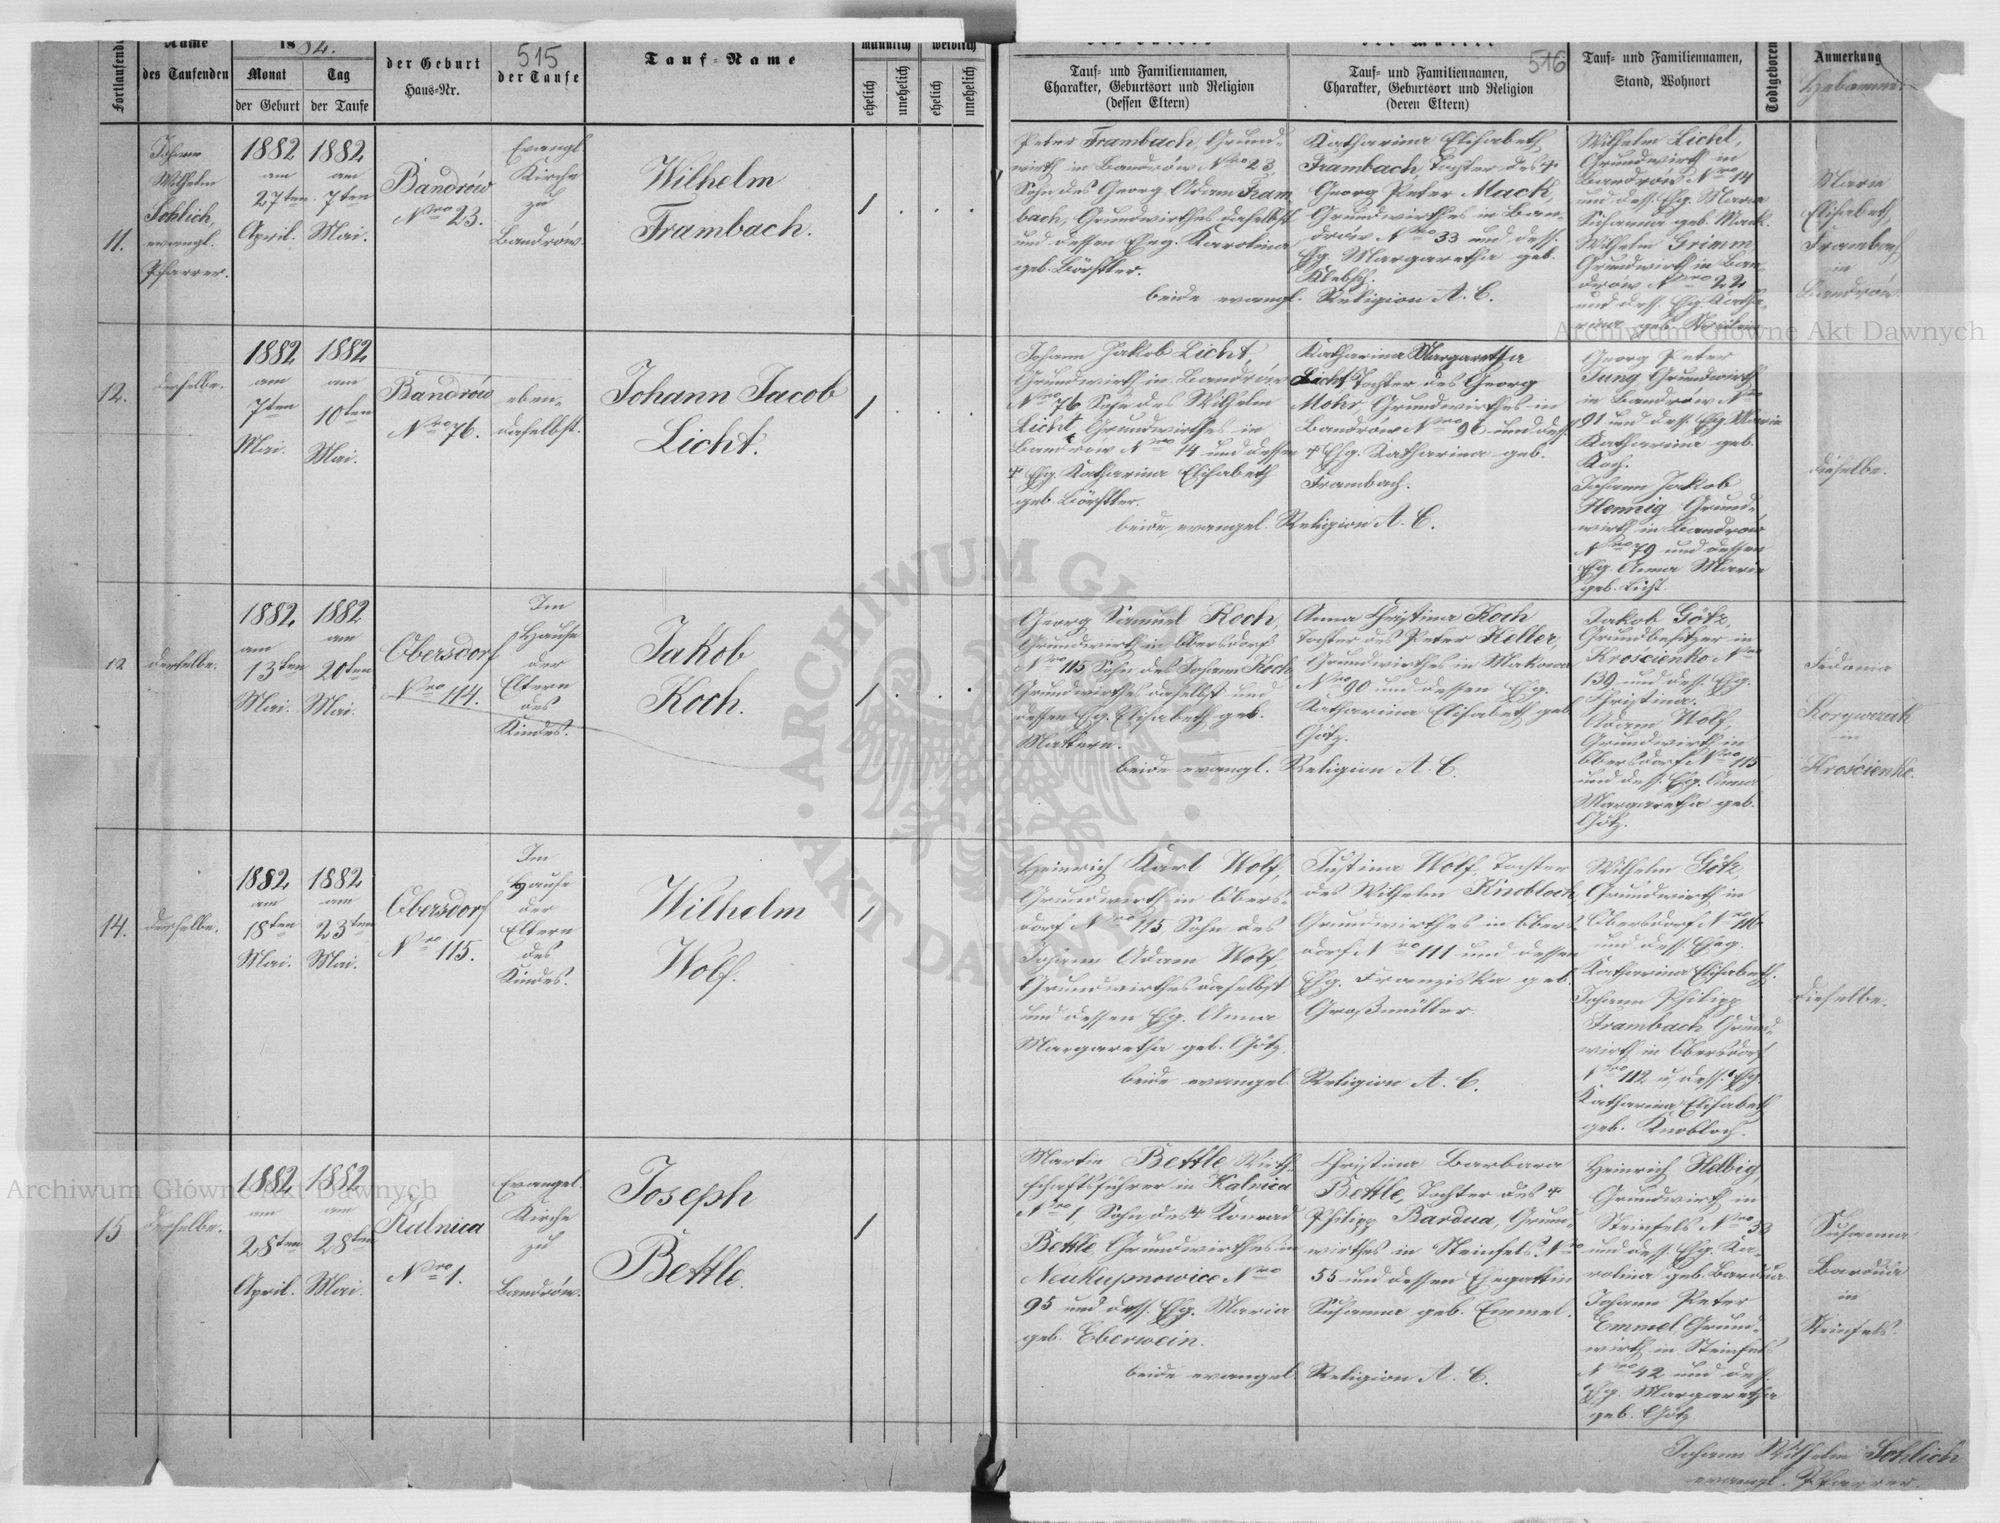 Fortlaufende
Name
des Taufenden
1882.
Monat
der Geburt
Tag
der Taufe
der Geburt
Haus-Nr.
515
der Taufe
Tauf-Name
männlich
weiblich
ehelich
unehelich
ehelich
unehelich
516
Tauf- und Familiennamen,
Charakter, Geburtsort und Religion
(dessen Eltern)
Tauf- und Familiennamen,
Charakter, Geburtsort und Religion
(deren Eltern)
Tauf- und Familiennamen,
Stand, Wohnort
Todtgeboren
Anmerkung
Hebamme
11.
Johann
Wilhelm
Schlich,
evangl.
Pfarrer.
1882
am
27ten
April.
1882
am
7ten
Mai.
Bandrów
Nro 23.
Evangl
Kirche
zu
Bandrów.
Wilhelm
Frambach.
1
Peter Frambach, Grund-
wirth in Bandrów Nro 23,
Sohn des Georg Adam Fram
bach, Grundwirthes daselbst
und dessen Ehg. Karolina
geb. Börstler.
Katharina Elisabeth
Frambach, Tochter des †
Georg Peter Mack,
Grundwirthes in Ban-
drów Nro 33 und dess.
Ehg. Margaretha geb.
beide evangl. Religion A. C.
Wilhelm Licht,
Grundwirth in
Bandrów Nro 14
und dess. Ehg. Maria
Susanna geb. Mack.
Wilhelm Grimm
Grundwirth in Ban-
drów Nro 22
und dess. Ehg. Katha-
rina geb.
Marie
Elisabeth
Frambach
in
Bandrów.
12.
derselbe.
1882
am
7ten
Mai.
1882
am
10ten
Mai.
Bandrów
Nro 76.
eben-
daselbst.
Johann Jacob
Licht.
1
Johann Jakob Licht,
Grundwirth in Bandrów
Nro 76 Sohn des Wilhelm
Licht, Grundwirthes in
Bandrów Nro 14 und dessen
† Ehg. Katharina Elisabeth
geb. Börstler.
Katharina Margaretha
Licht Tochter des Georg
Mohr, Grundwirthes in
Bandrów Nro 91 und dess.
† Ehg. Katharina geb.
Frambach.
beide evangel. Religion A. C.
Georg Peter
Jung Grundwirth
in Bandrow Nro
91 und dess. Ehg. Marie
Katharina geb.
Koch.
Johann Jakob
Hennig Grund-
wirth in Bandrów
Nro 79 und dessen
Ehg. Anna Maria
geb. Licht.
dieselbe.
derselbe.
1882
am
13ten
Mai.
1882
am
20ten
Mai.
Obersdorf
Nro 114.
Im
Hause
der
Eltern
des
Kindes.
Jakob
Koch.
1
Georg Samuel Koch,
Grundwirth in Obersdorf
Nro 115 Sohn des Johann Koch
Grundwirthes daselbst und
dessen Ehg. Elisabeth geb.
Mattern.
Anna Christina Koch
Tochter des Peter Keller,
Grundwirthes in Makowa
Nro 90 und dessen Ehg.
Katharina Elisabeth geb
Götz.
beide evangl. Religion A. C.
Jakob Götz,
Grundbesitzer in
Krościenko Nro
139 und dess. Ehg.
Christina.
Adam Wolf
Grundwirth in
Obersdorf Nro 115
und dess. Ehg. Anna
Margaretha geb.
Götz.
in
Krościenko.
14.
derselbe.
1882
am
18ten
Mai.
1882
am
23ten
Mai.
Obersdorf
Nro 115.
Im
Hause
der
Eltern
des
Kindes.
Wilhelm
Wolf.
1
Heinrich Karl Wolf,
Grundwirth in Obers-
dorf Nro 115 Sohn des
Johann Adam Wolf,
Grundwirthes daselbst
und dessen Ehg. Anna
Margaretha geb. Götz.
Justina Wolf, Tochter
des Wilhelm Knobloch,
Grundwirthes in Obers-
dorf Nro 111 und dessen
Ehg. Franziska geb.
Großmüller.
beide evangel. Religion A. C.
Wilhelm Götz,
Grundwirth in
Obersdorf Nro 116
und dess. Eheg.
Katharina Elisabeth.
Johann Philipp
Frambach Grund-
wirth in Obersdorf
Nro 112 u. dess. Ehg
Katharina Elisabeth
geb. Knobloch.
dieselbe.
15
derselbe.
1882
am
28ten
April.
1882
am
28ten
Mai.
Kalnica
Nro 1.
Evangel.
Kirche
zu
Bandrów.
Joseph
Bettle.
1
Martin Bettle, Wirth-
schaftsführer in Kalnica
Nro 1, Sohn des † Konrad
Bettle, Grundwirthes in
Neukupnowice Nro
95 und dess. Ehg. Maria
geb. Eberwein.
Christina Barbara
Bettle, Tochter des †
Philipp Bardua, Grund-
wirthes in Steinfels Nro
55 und dessen Ehegattin
Susanna geb. Emmel.
beide evangel. Religion A. C.
Heinrich Helbig,
Grundwirth in
Steinfels Nro 53
und dess. Ehg. Ka-
rolina geb. Bardua
Johann Peter
Emmel Grund-
wirth in Steinfels
Nro 42 und dess.
Ehg. Margaretha
geb. Götz
Susanna
Bardua
in
Steinfels.
Johann Wilhelm Schlich
evangl. Pfarrer.
Archiwum Główne Akt Dawnych
Archiwum Główne Akt Dawnych